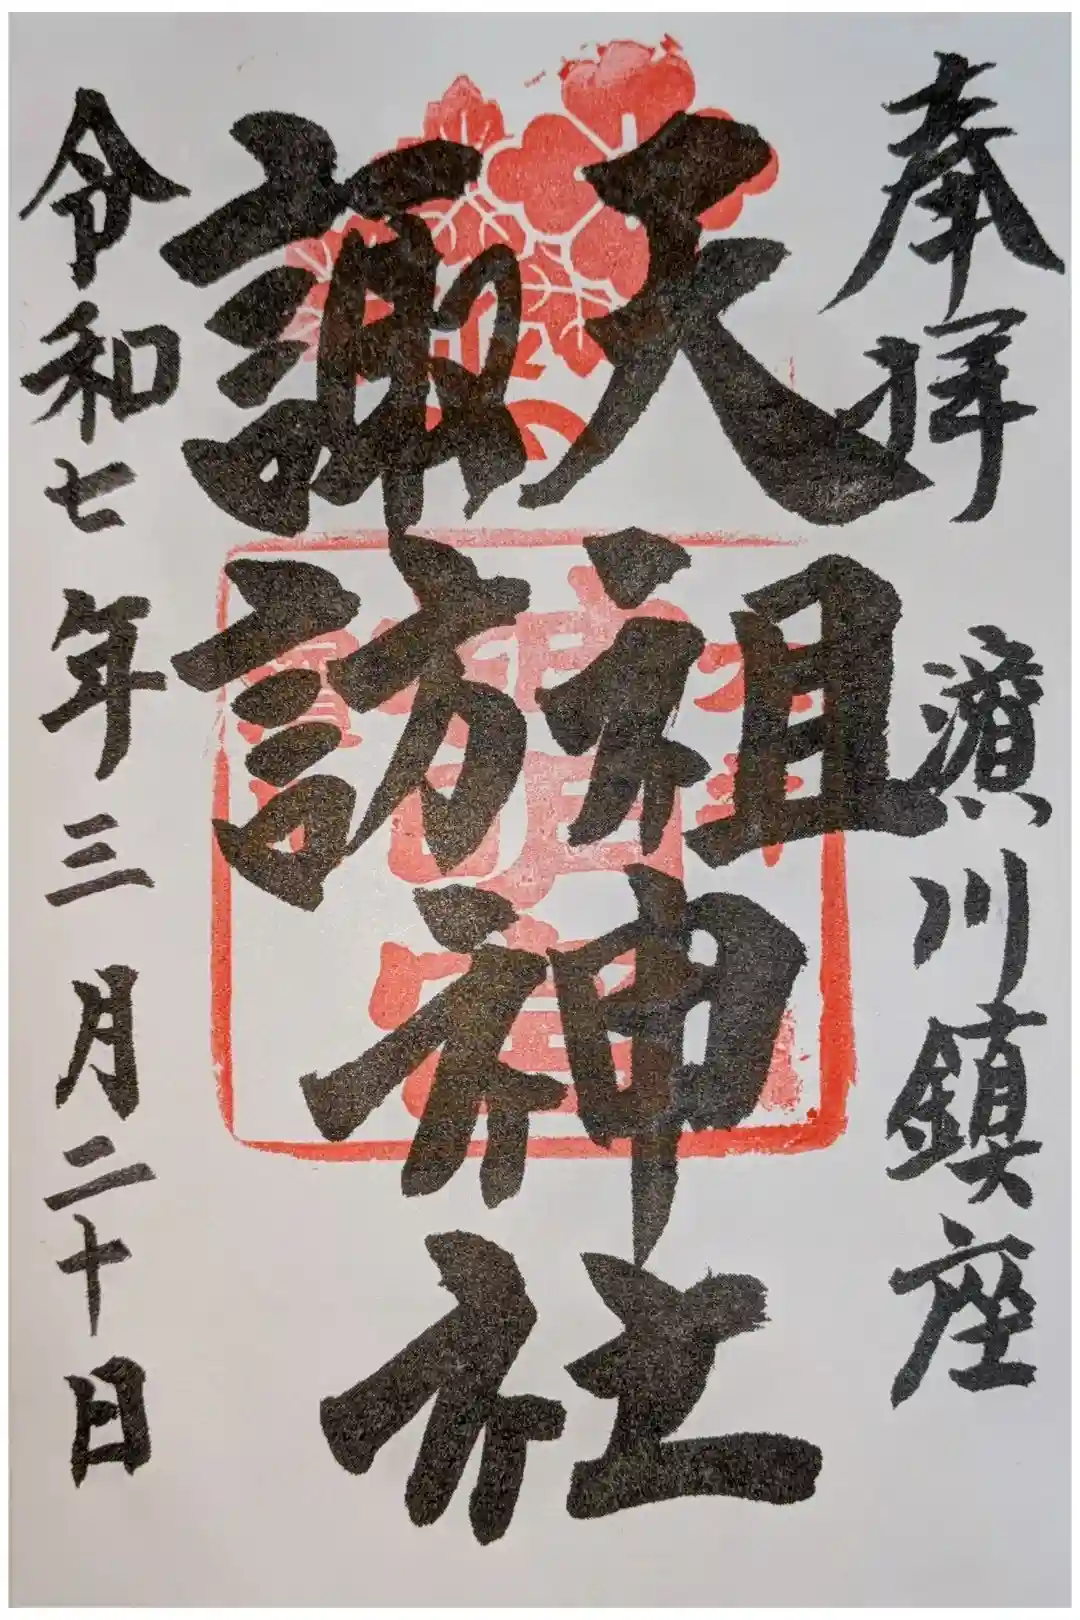 奉拝　濱川鎮座
天祖
諏訪
神社
令和七年三月二十日